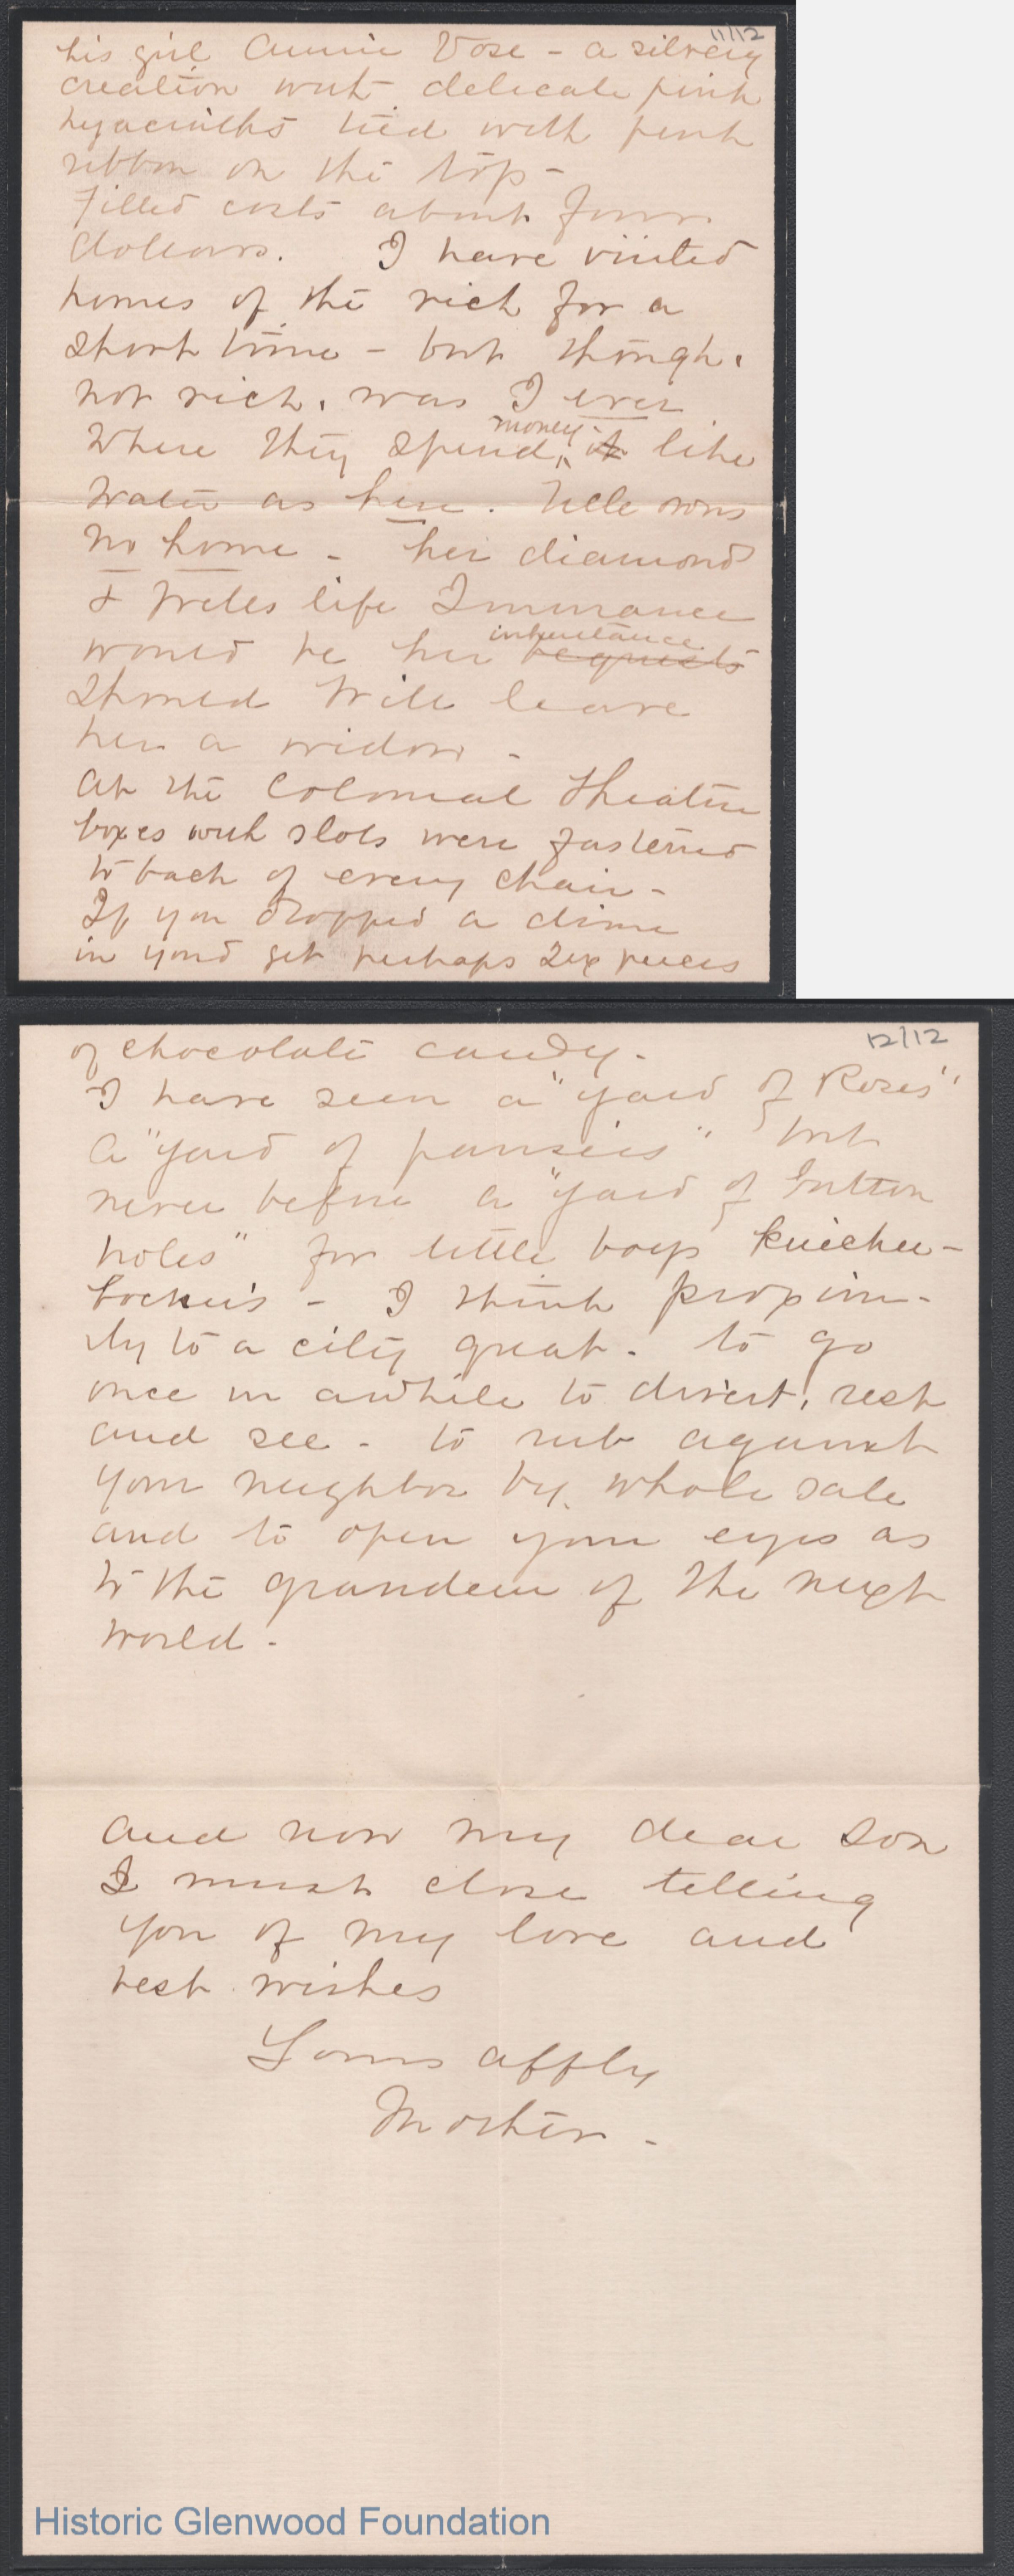 11/12
his girl Annie Vose - a silvery
creation with delicate pink
hyacinths tied with pink
ribbon on the top -
Filled costs about four
dollars. I have visited
homes of the rich for a
short time - but though
not rich, was I ever
money
where they spend it like
water as here. Nelle owns
no home - her diamonds
& Wills life Insurance
inheritance
would be her bequests
should Will leave
her a widow -
At the Colonial Theatre
boxes with slots were fastened
to back of every chair -
If you dropped a dime
in you'd get perhaps six pieces
12/12
of chocolate candy.
I have seen a "yard of Roses"
a "yard of pansies" but
never before a "yard of button
holes" for little boys knicker-
bockers - I think proxim-
ity to a city great. to go
once in awhile to divert, rest
and see - to rub against
your neighbor by whole sale
and to open your eyes as
to the grandeur of the next
world -
and now my dear son
I must close telling
you of my love and
best wishes
Yours affly
Mother -
Historic Glenwood Foundation